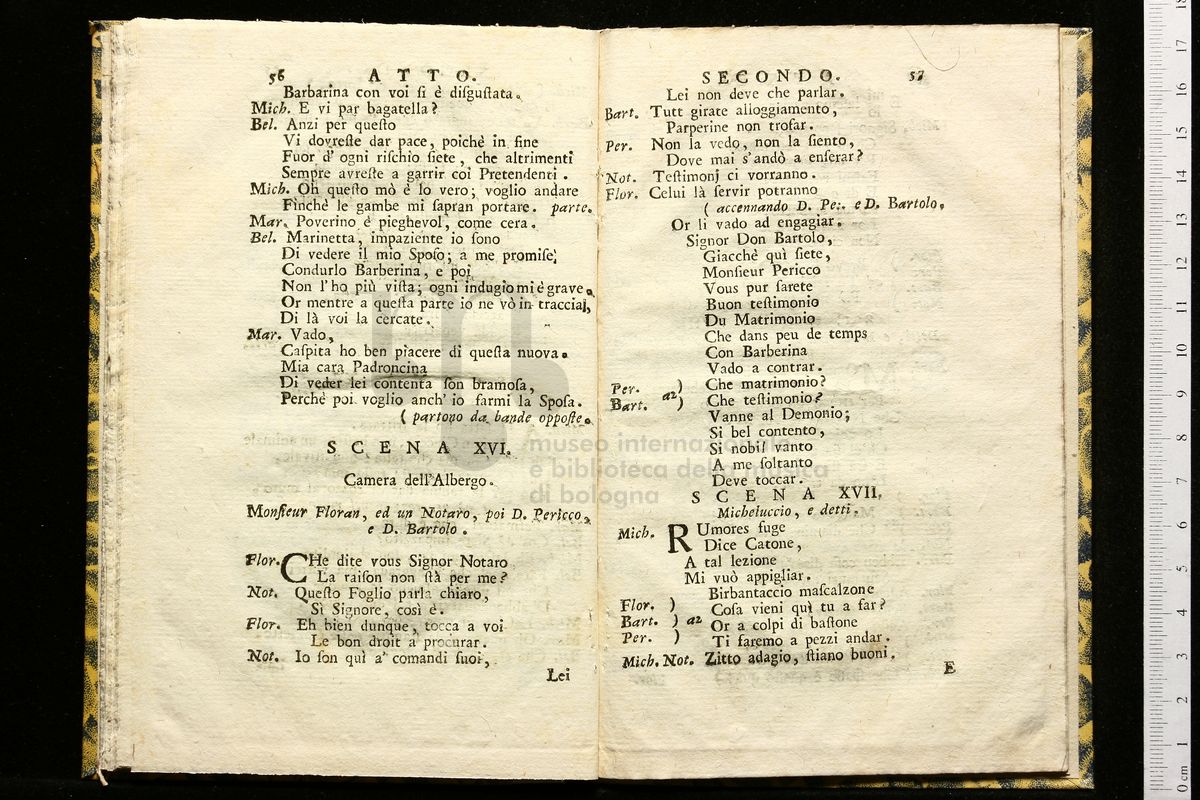 56 ATTO.
Barbarina con voi ſi è diſguſtata.
Mich. E vi par bagatella?
Bel. Anzi per queſto
Vi dovreſte dar pace, poichè in fine
Fuor d' ogni riſchio ſiete, che altrimenti
Sempre avreſte a garrir coi Pretendenti.
Mich. Oh queſto mò è lo vero; voglio andare
Finchè le gambe mi ſapran portare. parte.
Mar. Poverino è pieghevol, come cera.
Bel. Marinetta, impaziente io ſono
Di vedere il mio Spoſo; a me promiſe,
Condurlo Barberina, e poi
Non l' ho più viſta; ogni indugio mi è grave.
Or mentre a queſta parte io ne vò in tracciaj,
Di là voi la cercate.
Mar. Vado,
Caſpita ho ben piacere di queſta nuova.
Mia cara Padroncina
Di veder lei contenta ſon bramoſa,
Perchè poi voglio anch' io farmi la Spoſa.
( partono da bande oppoſte.
SCENA XVI.
Camera dell'Albergo.
Monſieur Floran, ed un Notaro, poi D. Pericco,
e D. Bartolo.
Flor. CHe dite vous Signor Notaro
La raiſon non ſtà per me?
Not. Queſto Foglio parla chiaro,
Sì Signore, così è.
Flor. Eh bien dunque, tocca a voi
Le bon droit a procurar.
Not. Io ſon quì a' comandi ſuoi,
Lei
SECONDO. 57
Lei non deve che parlar.
Bart. Tutt girate alloggiamento,
Parperine non trofar.
Per. Non la vedo, non la ſiento,
Dove mai s' andò a enſerar?
Not. Teſtimonj ci vorranno.
Flor. Celui là ſervir potranno
( accennando D. Per. e D. Bartolo.
Or li vado ad engagiar.
Signor Don Bartolo,
Giacchè quì ſiete,
Monſieur Pericco
Vous pur ſarete
Buon teſtimonio
Du Matrimonio
Che dans peu de temps
Con Barberina
Vado a contrar.
Per. ) Che matrimonio?
Bart. a2 ) Che teſtimonio?
Vanne al Demonio;
Si bel contento,
Si nobil vanto
A me ſoltanto
Deve toccar.
SCENA XVII.
Micheluccio, e detti.
Mich. RUmores fuge
Dice Catone,
A tal lezione
Mi vuò appigliar.
Birbantaccio maſcalzone
Flor. ) Coſa vieni quì tu a far?
Bart. ) a2 Or a colpi di baſtone
Per. ) Ti faremo a pezzi andar.
Mich. Not. Zitto adagio, ſtiano buoni.
E
museo internazionale
e biblioteca della musica
di bologna
0 cm 1 2 3 4 5 6 7 8 9 10 11 12 13 14 15 16 17 18